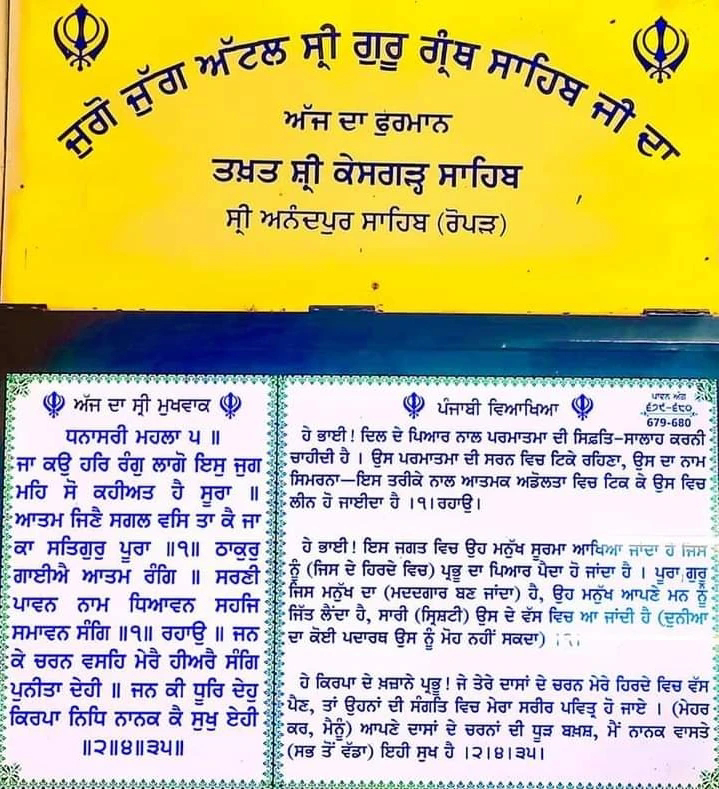 ਜੁਗੋ ਜੁੱਗ ਅੱਟਲ ਸ੍ਰੀ ਗੁਰੂ ਗ੍ਰੰਥ ਸਾਹਿਬ ਜੀ ਦਾ
ਅੱਜ ਦਾ ਫੁਰਮਾਨ
ਤਖ਼ਤ ਸ਼੍ਰੀ ਕੇਸਗੜ੍ਹ ਸਾਹਿਬ
ਸ੍ਰੀ ਅਨੰਦਪੁਰ ਸਾਹਿਬ (ਰੋਪੜ)
ਅੱਜ ਦਾ ਸ੍ਰੀ ਮੁਖਵਾਕ
ਧਨਾਸਰੀ ਮਹਲਾ ੫ ॥
ਜਾ ਕਉ ਹਰਿ ਰੰਗੁ ਲਾਗੋ ਇਸੁ ਜੁਗ
ਮਹਿ ਸੋ ਕਹੀਅਤ ਹੈ ਸੂਰਾ ॥
ਆਤਮ ਜਿਣੈ ਸਗਲ ਵਸਿ ਤਾ ਕੈ ਜਾ
ਕਾ ਸਤਿਗੁਰੁ ਪੂਰਾ ॥੧॥ ਠਾਕੁਰੁ
ਗਾਈਐ ਆਤਮ ਰੰਗਿ ॥ ਸਰਣੀ
ਪਾਵਨ ਨਾਮ ਧਿਆਵਨ ਸਹਜਿ
ਸਮਾਵਨ ਸੰਗਿ ॥੧॥ ਰਹਾਉ ॥ ਜਨ
ਕੇ ਚਰਨ ਵਸਹਿ ਮੇਰੈ ਹੀਅਰੈ ਸੰਗਿ
ਪੁਨੀਤਾ ਦੇਹੀ ॥ ਜਨ ਕੀ ਧੂਰਿ ਦੇਹੁ
ਕਿਰਪਾ ਨਿਧਿ ਨਾਨਕ ਕੈ ਸੁਖੁ ਏਹੀ
॥੨॥੪॥੩੫॥
ਪੰਜਾਬੀ ਵਿਆਖਿਆ
ਪਾਵਨ ਅੰਗ
੬੭੯-੬੮੦
679-680
ਹੇ ਭਾਈ! ਦਿਲ ਦੇ ਪਿਆਰ ਨਾਲ ਪਰਮਾਤਮਾ ਦੀ ਸਿਫ਼ਤਿ-ਸਾਲਾਹ ਕਰਨੀ
ਚਾਹੀਦੀ ਹੈ । ਉਸ ਪਰਮਾਤਮਾ ਦੀ ਸਰਨ ਵਿਚ ਟਿਕੇ ਰਹਿਣਾ, ਉਸ ਦਾ ਨਾਮ
ਸਿਮਰਨਾ—ਇਸ ਤਰੀਕੇ ਨਾਲ ਆਤਮਕ ਅਡੋਲਤਾ ਵਿਚ ਟਿਕ ਕੇ ਉਸ ਵਿਚ
ਲੀਨ ਹੋ ਜਾਈਦਾ ਹੈ ।੧।ਰਹਾਉ।
ਹੇ ਭਾਈ! ਇਸ ਜਗਤ ਵਿਚ ਉਹ ਮਨੁੱਖ ਸੂਰਮਾ ਆਖਿਆ ਜਾਂਦਾ ਹੈ ਜਿਸ
ਨੂੰ (ਜਿਸ ਦੇ ਹਿਰਦੇ ਵਿਚ) ਪ੍ਰਭੂ ਦਾ ਪਿਆਰ ਪੈਦਾ ਹੋ ਜਾਂਦਾ ਹੈ । ਪੂਰਾ ਗੁਰੂ
ਜਿਸ ਮਨੁੱਖ ਦਾ (ਮਦਦਗਾਰ ਬਣ ਜਾਂਦਾ) ਹੈ, ਉਹ ਮਨੁੱਖ ਆਪਣੇ ਮਨ ਨੂੰ
ਜਿੱਤ ਲੈਂਦਾ ਹੈ, ਸਾਰੀ (ਸ੍ਰਿਸ਼ਟੀ) ਉਸ ਦੇ ਵੱਸ ਵਿਚ ਆ ਜਾਂਦੀ ਹੈ (ਦੁਨੀਆ
ਦਾ ਕੋਈ ਪਦਾਰਥ ਉਸ ਨੂੰ ਮੋਹ ਨਹੀਂ ਸਕਦਾ) ।੧।
ਹੇ ਕਿਰਪਾ ਦੇ ਖ਼ਜ਼ਾਨੇ ਪ੍ਰਭੂ! ਜੇ ਤੇਰੇ ਦਾਸਾਂ ਦੇ ਚਰਨ ਮੇਰੇ ਹਿਰਦੇ ਵਿਚ ਵੱਸ
ਪੈਣ, ਤਾਂ ਉਹਨਾਂ ਦੀ ਸੰਗਤਿ ਵਿਚ ਮੇਰਾ ਸਰੀਰ ਪਵਿਤ੍ਰ ਹੋ ਜਾਏ । (ਮੇਹਰ
ਕਰ, ਮੈਨੂੰ) ਆਪਣੇ ਦਾਸਾਂ ਦੇ ਚਰਨਾਂ ਦੀ ਧੂੜ ਬਖ਼ਸ਼, ਮੈਂ ਨਾਨਕ ਵਾਸਤੇ
(ਸਭ ਤੋਂ ਵੱਡਾ) ਇਹੀ ਸੁਖ ਹੈ ।੨।੪।੩੫।